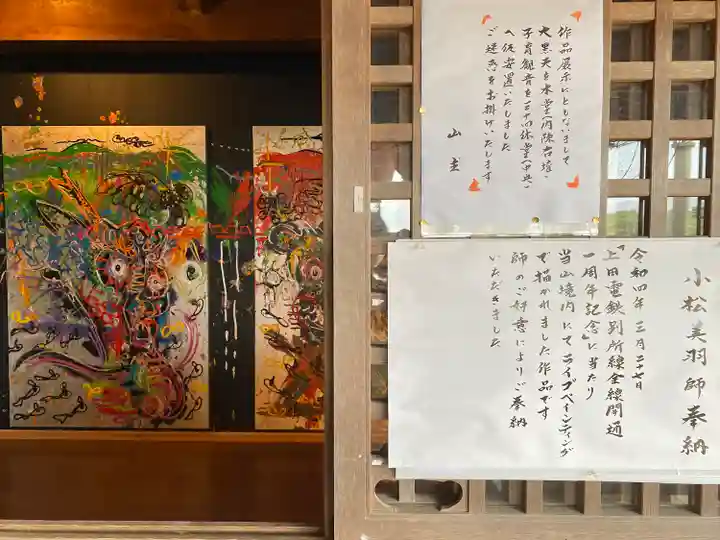 作品展示にともないまして
大黒天を本堂(内陣右壇)
子育観音を三十四体堂(中央)
へ仮安置いたしました
ご迷惑お掛けいたします
山主
小松美羽師奉納
令和四年三月二十七日
『上田電鉄別所線全線開通
一周年記念』に当たり
当山境内にてライブペインティング
で描かれました作品です
師のご好意によりご奉納
いただきました